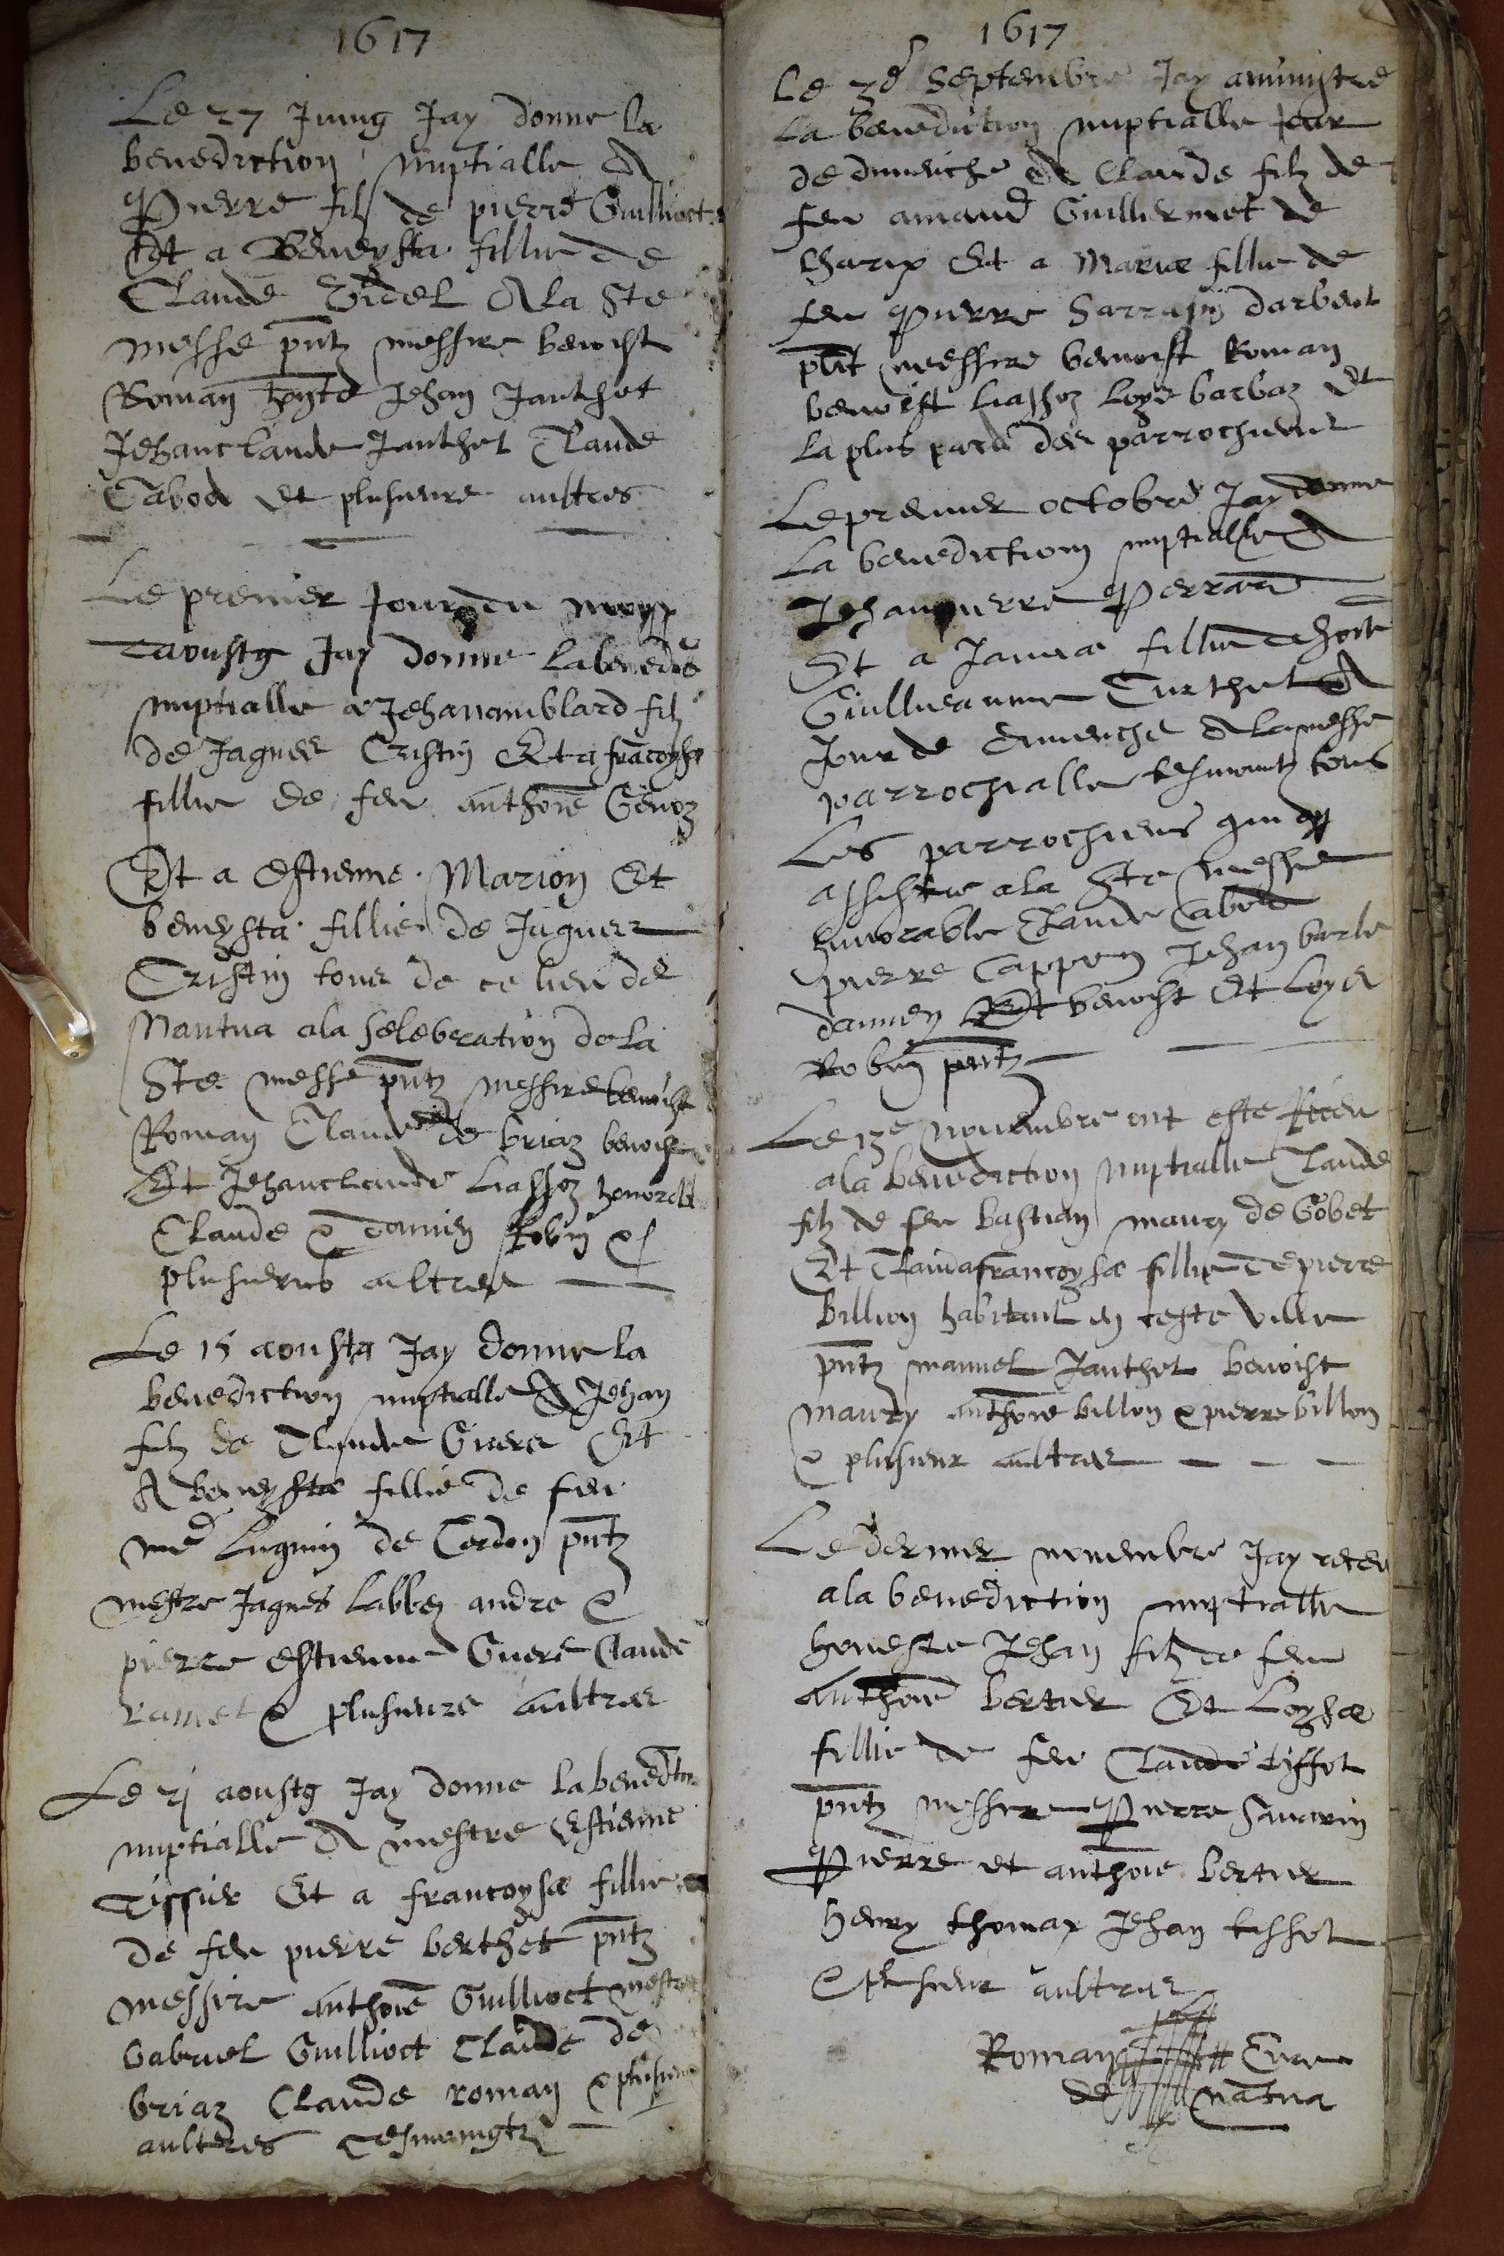 1617
Le 27 Juing Jay donne la
benediction nuptialle A
Pierre filz de pierre Guillioct
Et a Beneysta fillie de
Claude Videl A la Ste
messe pntz messire benoist
Roman Jehan Janthet
Jehanclaude Janthet Claude
Cabod et plusieurs aultres
Le premier Jour du moys
daoustg Jay donne la
nuptialle a Jehanamblard filz
de Jaques Cristin Et a francoysa
fillie de feu anthoie Genoz
Et a Estienne Marion Et
beneysta fillie de Jaques
Cristin tous de ce lieu de
Nantua ala seleberation de la
Ste messe pntz messire benoist
Roman Claude de briaz benoist
Et Jehanclaude Liassoz
Claude & Damien Robin &
plusieurs altres
Le 15 aousta Jay donne la
benediction nuptialle A Jehan
filz de Claude Guere Et
A beneysta fillie de feu
Luquin de Cerdon pntz
mestre Jaques Labbez andre &
pierre estienne Guere Claude
ramel & plusieurs aultres
Le aoustg Jay donne la
nuptialle A mestre Estienne
Tissier Et a francoysa fillie
de feu pierre berthet pntz
messire anthoie Guillioct mestre
Gabriel Guillioct Claude de
briaz Claude roman & plusieurs
aulteres tesmoingtz
1617
Le Septembre Jay aministre
La benediction nuptialle Jour
de dimenche A Claude filz de
feu amand Guilliermet de
Charix Et a Maria fillie de
feu Pierre Sarrasin darbent
pnt messire benoist Roman
benoist Liassoz Loys barbaz et
la plus part des parrochiens
Le premier octobre Jay donne
La benediction nuptialle A
Jehanpierre Perraud
Et a Janna fillie dhoste
Guillieaume Turthet A
Jour de dimenche A la messe
parrochialle tesmointz tous
Les parrochiens qui
assiste a la Ste messe
honorable Claude Cabod
pierre Cappon Jehan barle
damien Et benoist Et Loys
Robin pntz
Le 13e novembre ont este Receu
ala benediction nuptialle Claude
filz de feu bastian maury de Gobet
Et Claudafrancoysa fillie de pierre
billion habitant en ceste ville
pntz manuel Janthet benoist
maury anthoie billon & pierre billon
& plusieur aultres
Le dernier novembre Jay receu
ala benediction nuptialle
honeste Jehan filz de feu
anthoie bertier Et Loysa
fillie de feu Claude tissot
pntz messire Pierre
Pierre et anthoie bertier
henry thomas Jehan tissot
& plusieur aultres
Roman Cure
de nantua